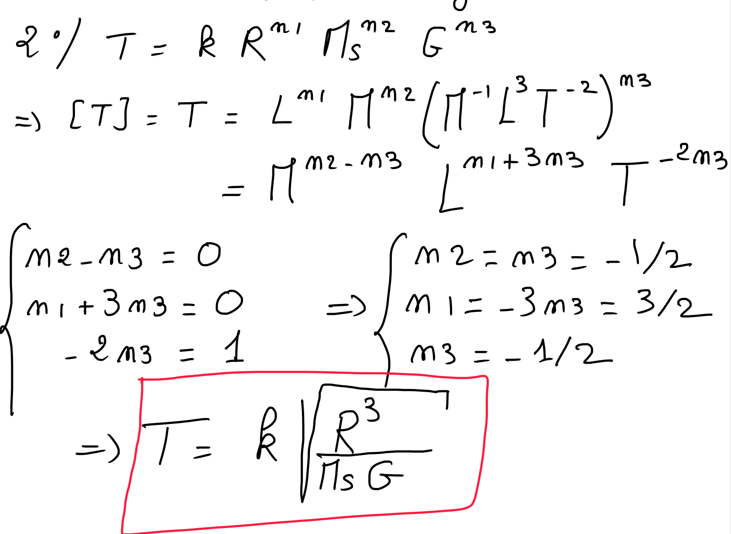 2°/ T = k R^n1 Ms^n2 G^n3
=> [T] = T = L^n1 M^n2 (M^-1 L^3 T^-2)^n3
= M^n2-n3 L^n1+3n3 T^-2n3
{ n2-n3 = 0
n1+3n3 = 0
-2n3 = 1
=> { n2 = n3 = -1/2
n1 = -3n3 = 3/2
n3 = -1/2
=> T = k √(R^3 / Ms G)